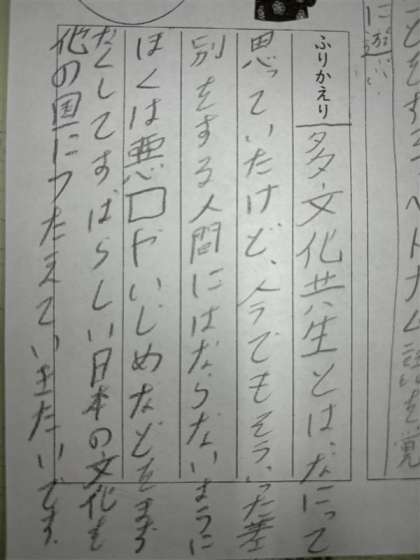 ベトナム語を覚
に遊
ふりかえり
多文化共生とは、なにって
思っていたけど、今でもそういった差
別をする人間にはならないように
ぼくは悪口やいじめなどをまず
なくしてすばらしい日本の文化を
他の国につたえていきたいです。